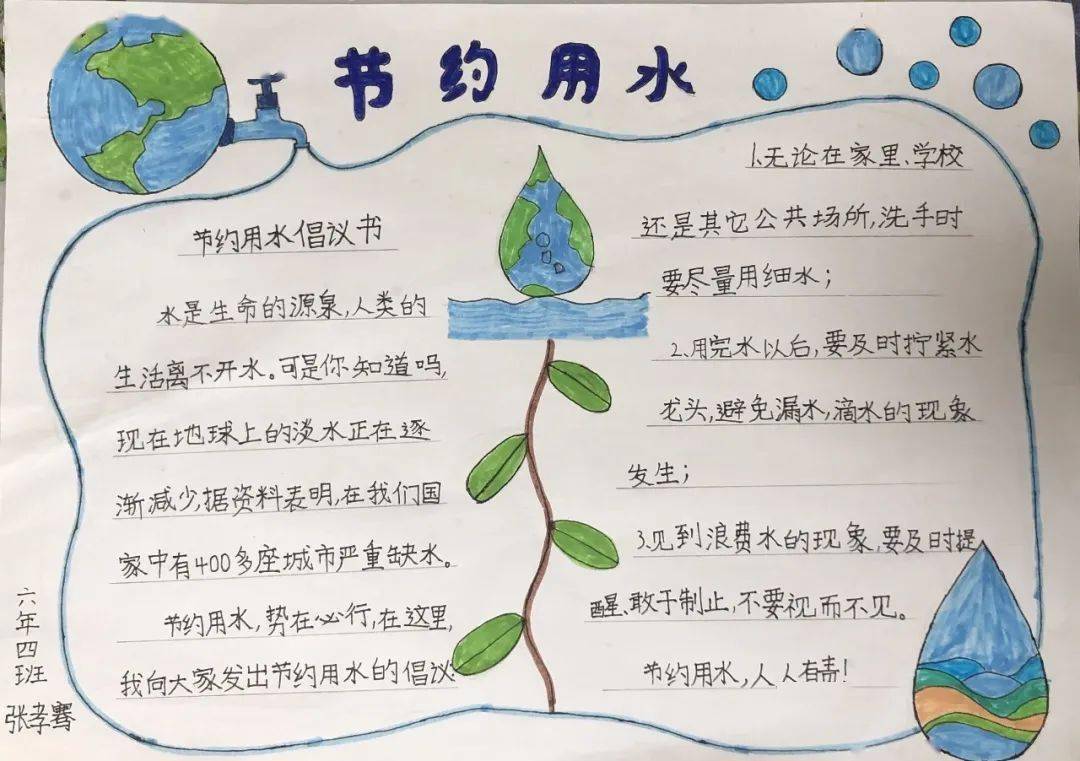 节约用水
节约用水倡议书
水是生命的源泉,人类的
生活离不开水。可是你知道吗,
现在地球上的淡水正在逐
渐减少,据资料表明,在我们国
家中有400多座城市严重缺水。
节约用水,势在必行,在这里,
我向大家发出节约用水的倡议:
1、无论在家里、学校
还是其它公共场所,洗手时
要尽量用细水;
2、用完水以后,要及时拧紧水
龙头,避免漏水,滴水的现象
发生;
3.见到浪费水的现象,要及时提
醒、敢于制止,不要视而不见。
节约用水,人人有责!
六年四班
张孝骞